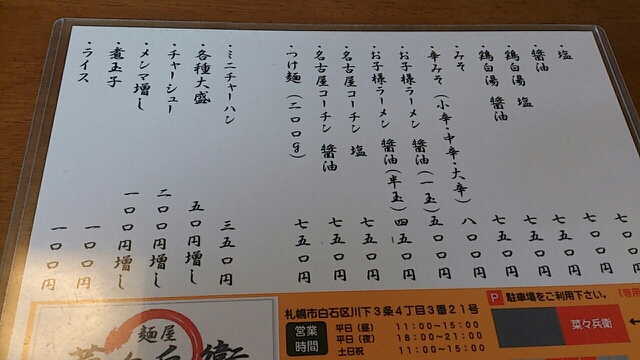 ・塩 七〇〇円
・醤油 七〇〇円
・鶏白湯 塩 七五〇円
・鶏白湯 醤油 七五〇円
・みそ 七五〇円
・辛みそ（小辛・中辛・大辛） 八〇〇円
・お子様ラーメン 醤油（一玉） 五〇〇円
・お子様ラーメン 醤油（半玉） 四五〇円
・名古屋コーチン 塩 七五〇円
・名古屋コーチン 醤油 七五〇円
・つけ麺（二〇〇g） 七五〇円
・ミニチャーハン 三五〇円
・各種大盛 五〇円増し
・チャーシュー 二〇〇円増し
・メンマ増し 一〇〇円増し
・煮玉子 一〇〇円
・ライス 一〇〇円
麺屋
札幌市白石区川下3条4丁目3番21号
営業時間
平日（昼） 11:00～15:00
平日（夜） 18:00～21:00
土日祝 11:00～16:00
P 駐車場をご利用下さい。
菜々兵衛